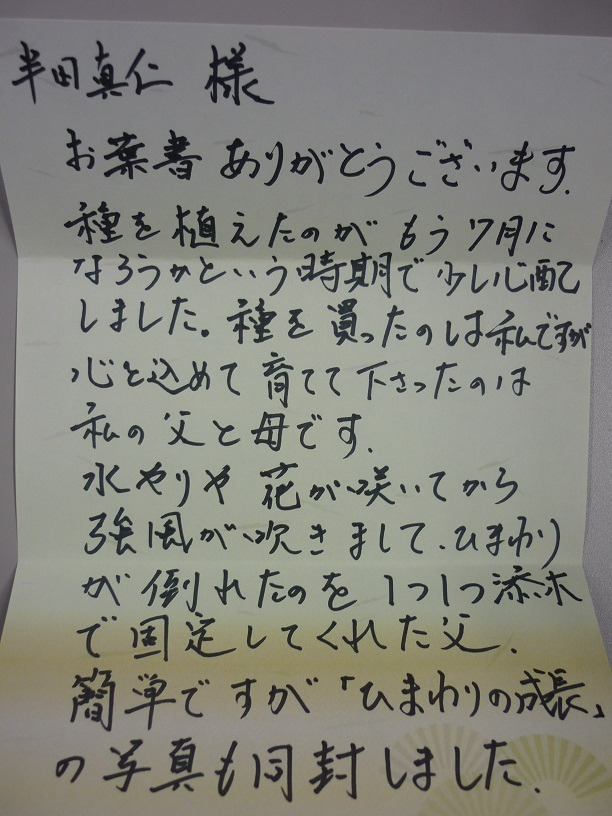 半田真仁 様
お葉書ありがとうございます.
種を植えたのがもう7月に
なろうかという時期で少し心配
しました。種を買ったのは私ですが
心を込めて育てて下さったのは
私の父と母です.
水やりや花が咲いてから
強風が吹きまして.ひまわり
が倒れたのを1つ1つ添木
で固定してくれた父.
簡単ですが「ひまわりの成長」
の写真も同封しました.